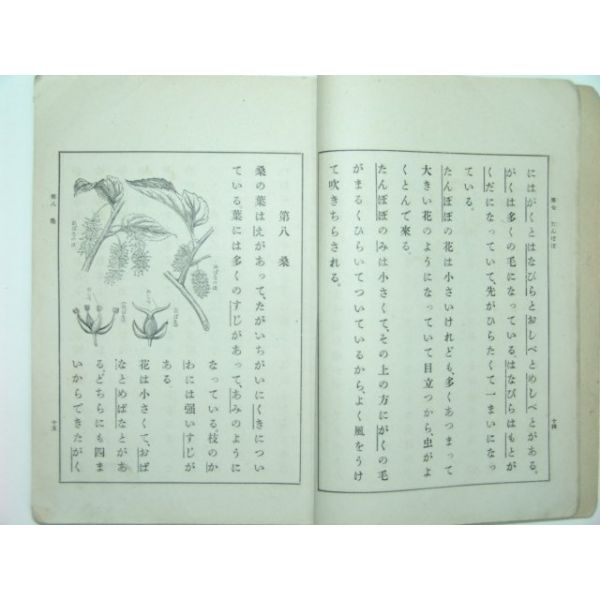 第七 たんぽぽ
十四
にはがくとはなびらとおしべとめしべとがある。
がくは多くの毛になっている。はなびらはもとが
くだになっていて、先がひらたくて一まいになっ
ている。
たんぽぽの花は小さいけれども、多くあつまって
大きい花のようになっていて目立つから、虫がよ
くとんで来る。
たんぽぽのみは小さくて、その上の方にがくの毛
がまるくひらいてついているから、よく風をうけ
て吹きちらされる。
第八 桑
桑の葉はえがあって、たがいちがいにくきについ
ている。葉には多くのすじがあって、あみのように
なっている。枝のか
わには強いすじが
ある。
花は小さくて、おば
なとめばなとがあ
る。どちらにも四ま
いからできたがく
第八 桑
十五